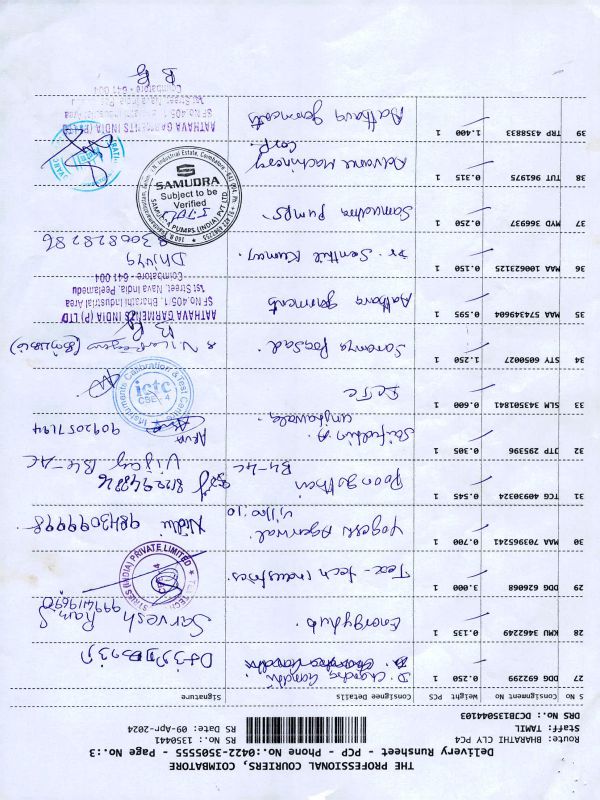 THE PROFESSIONAL COURIERS, COIMBATORE
Delivery Runsheet - PCP - Phone No.:0422-3505555 - Page No.:3
Route: BHARATHI CLY PC4 RS No.: 1350441
Staff: TAMIL RS Date: 09-Apr-2024
DRS No.: DCB135044103
S No Consignment No Weight PCS Consignee Details Signature
27 DDG 692299 0.250 1 D. Chandra Gandhi
28 KMU 3462249 0.135 1 Energyhub. Sarvesh Ram
9994119690
29 DDG 626068 3.000 1 Tex-tech industries.
30 MAA 703965241 0.700 1 Yogesh Agarwal. Nidhi 9843099998
31 TCG 40930324 0.545 1 Poongothai
B4-4C Vijay B4-4C
32 JTP 295396 0.305 1 Saifuddin A Arwa 9092057194
33 SLM 343501841 0.600 1 ICTC
34 STY 6050027 1.250 1 Saranya Prasad.
35 MAA 574349604 0.595 1 Aathava garments
AATHAVA GARMENTS INDIA (P) LTD
SF No.405/1, Bharathi Industrial Area
1st Street, Nava India, Peelamedu
Coimbatore - 641 004
36 MAA 100623125 0.150 1 Dr. Senthil Kumar.
37 MYD 366937 0.250 1 Samudra Pumps.
SAMUDRA
Subject to be
Verified
SAMUDRA PUMPS (INDIA) PVT LTD
38 TUT 961975 0.315 1 Advance Machinery
Corp.
39 TRP 4358833 1.400 1 Aathava garments
AATHAVA GARMENTS INDIA (P)
SF No.405/1,
Coimbatore - 641 004